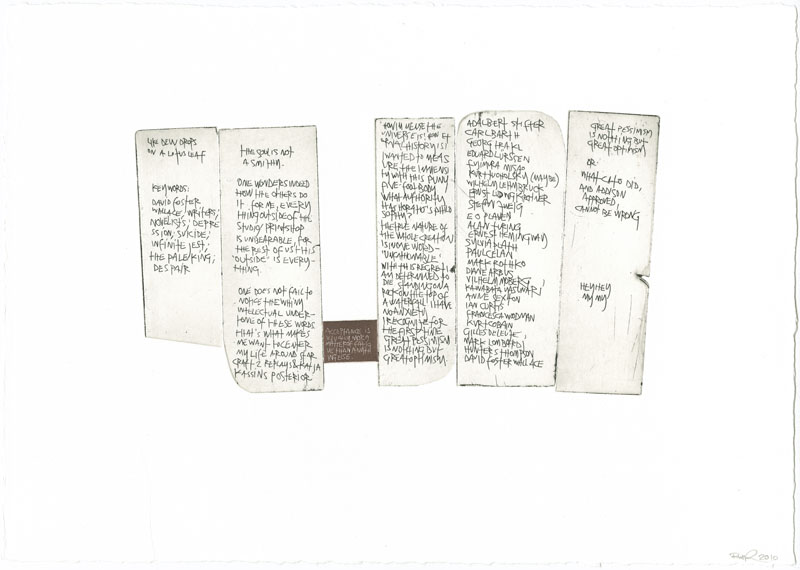 LIKE DEW DROPS
ON A LOTUS LEAF
KEYWORDS:
DAVID FOSTER
WALLACE; WRITERS;
NOVELISTS; DEPRE
SSION; SUICIDE;
INFINITE JEST;
THE PALE KING;
DESPAIR
THE SOUL IS NOT
A SMITHY.
ONE WONDERS INDEED
HOW THE OTHERS DO
IT. FOR ME, EVERY
THING OUTSIDE OF THE
STUDIO/PRINTSHOP
IS UNBEARABLE, FOR
THE REST OF US THIS
'OUTSIDE' IS EVERY-
THING.
ONE DOES NOT FAIL TO
NOTICE THE WHINY
INTELLECTUAL UNDER-
TONE OF THESE WORDS
THAT'S WHAT MAKES
ME WANT TO CENTER
MY LIFE AROUND STAR
CRAFT 2 REPLAYS & KATJA
KASSIN'S POSTERIOR
ACCEPTANCE IS
USUALLY MORE A
MATTER OF FATIG
UE THAN ANYTH
ING ELSE
HOW IMMENSE THE
UNIVERSE IS! HOW ET
ERNAL HISTORY IS! I
WANTED TO MEAS
URE THE IMMENSI
TY WITH THIS PUNY
FIVE-FOOT BODY
WHAT AUTHORITY
HAS HORATIO'S PHILO
SOPHY?
THE TRUE NATURE OF
THE WHOLE CREATION
IS IN ONE WORD -
'UNFATHOMABLE'
WITH THIS REGRET I
AM DETERMINED TO
DIE STANDING ON A
ROCK ON THE TOP OF
A WATERFALL I HAVE
NO ANXIETY
I RECOGNIZE FOR
THE FIRST TIME
GREAT PESSIMISM
IS NOTHING BUT
GREAT OPTIMISM
ADALBERT STIFTER
CARL BARTH
GEORG TRAKL
EDUARD LÜRSSEN
FUJIMURA MISAO
KURT TUCHOLSKY (MAYBE)
WILHELM LEHMBRUCK
ERNST LUDWIG KIRCHNER
STEFAN ZWEIG
E O PLAUEN
ALAN TURING
ERNEST HEMINGWAY
SYLVIA PLATH
PAUL CELAN
MARK ROTHKO
DIANE ARBUS
VILHELM MOBERG
KAWABATA YASUNARI
ANNE SEXTON
IAN CURTIS
FRANCESCA WOODMAN
KURT COBAIN
GILLES DELEUZE
MARK LOMBARDI
HUNTER S THOMPSON
DAVID FOSTER WALLACE
GREAT PESSIMISM
IS NOTHING BUT
GREAT OPTIMISM
OR:
WHAT CATO DID,
AND ADDISON
APPROVED,
CANNOT BE WRONG
HEY HEY
MY MY
2010